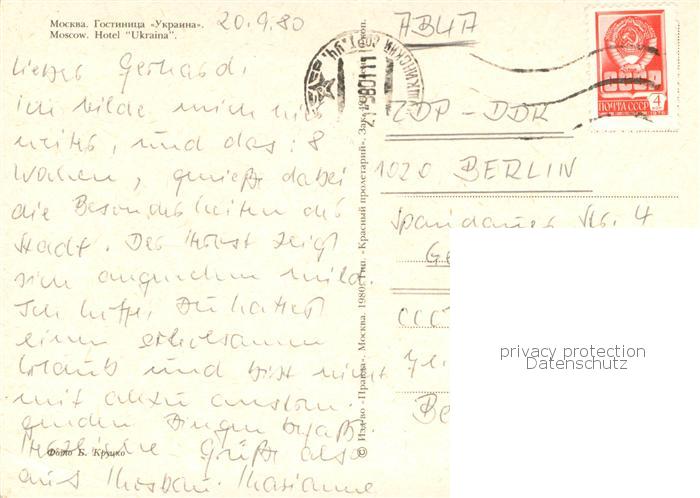 Москва. Гостиница «Украина».
Moscow. Hotel "Ukraina".
20.9.80
Liebes Gerhard,
ich bilde mich hier
weiter, und das: 8
Wochen, genieße dabei
die Besonderheiten der
Stadt. Der Herbst zeigt
sich angenehm mild.
Ich hoffe, Du hattest
einen erholsamen
Urlaub und bist nicht
mit allzu anstren-
genden Dingen befaßt.
Herzliche Grüße also
aus Moskau. Marianne
Фото Б. Круцко
© Изд-во «Правда». Москва. 1980. Тип. «Красный пролетарий».
АВИА
ПОЧТА СССР
4
ZDP - DDR
1020 BERLIN
Spandauer Str. 4
Ge
СССР
Be
privacy protection
Datenschutz